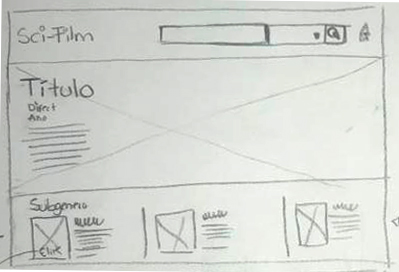 Sci-Film
Título
Direct
Ano
Subgenero
Click